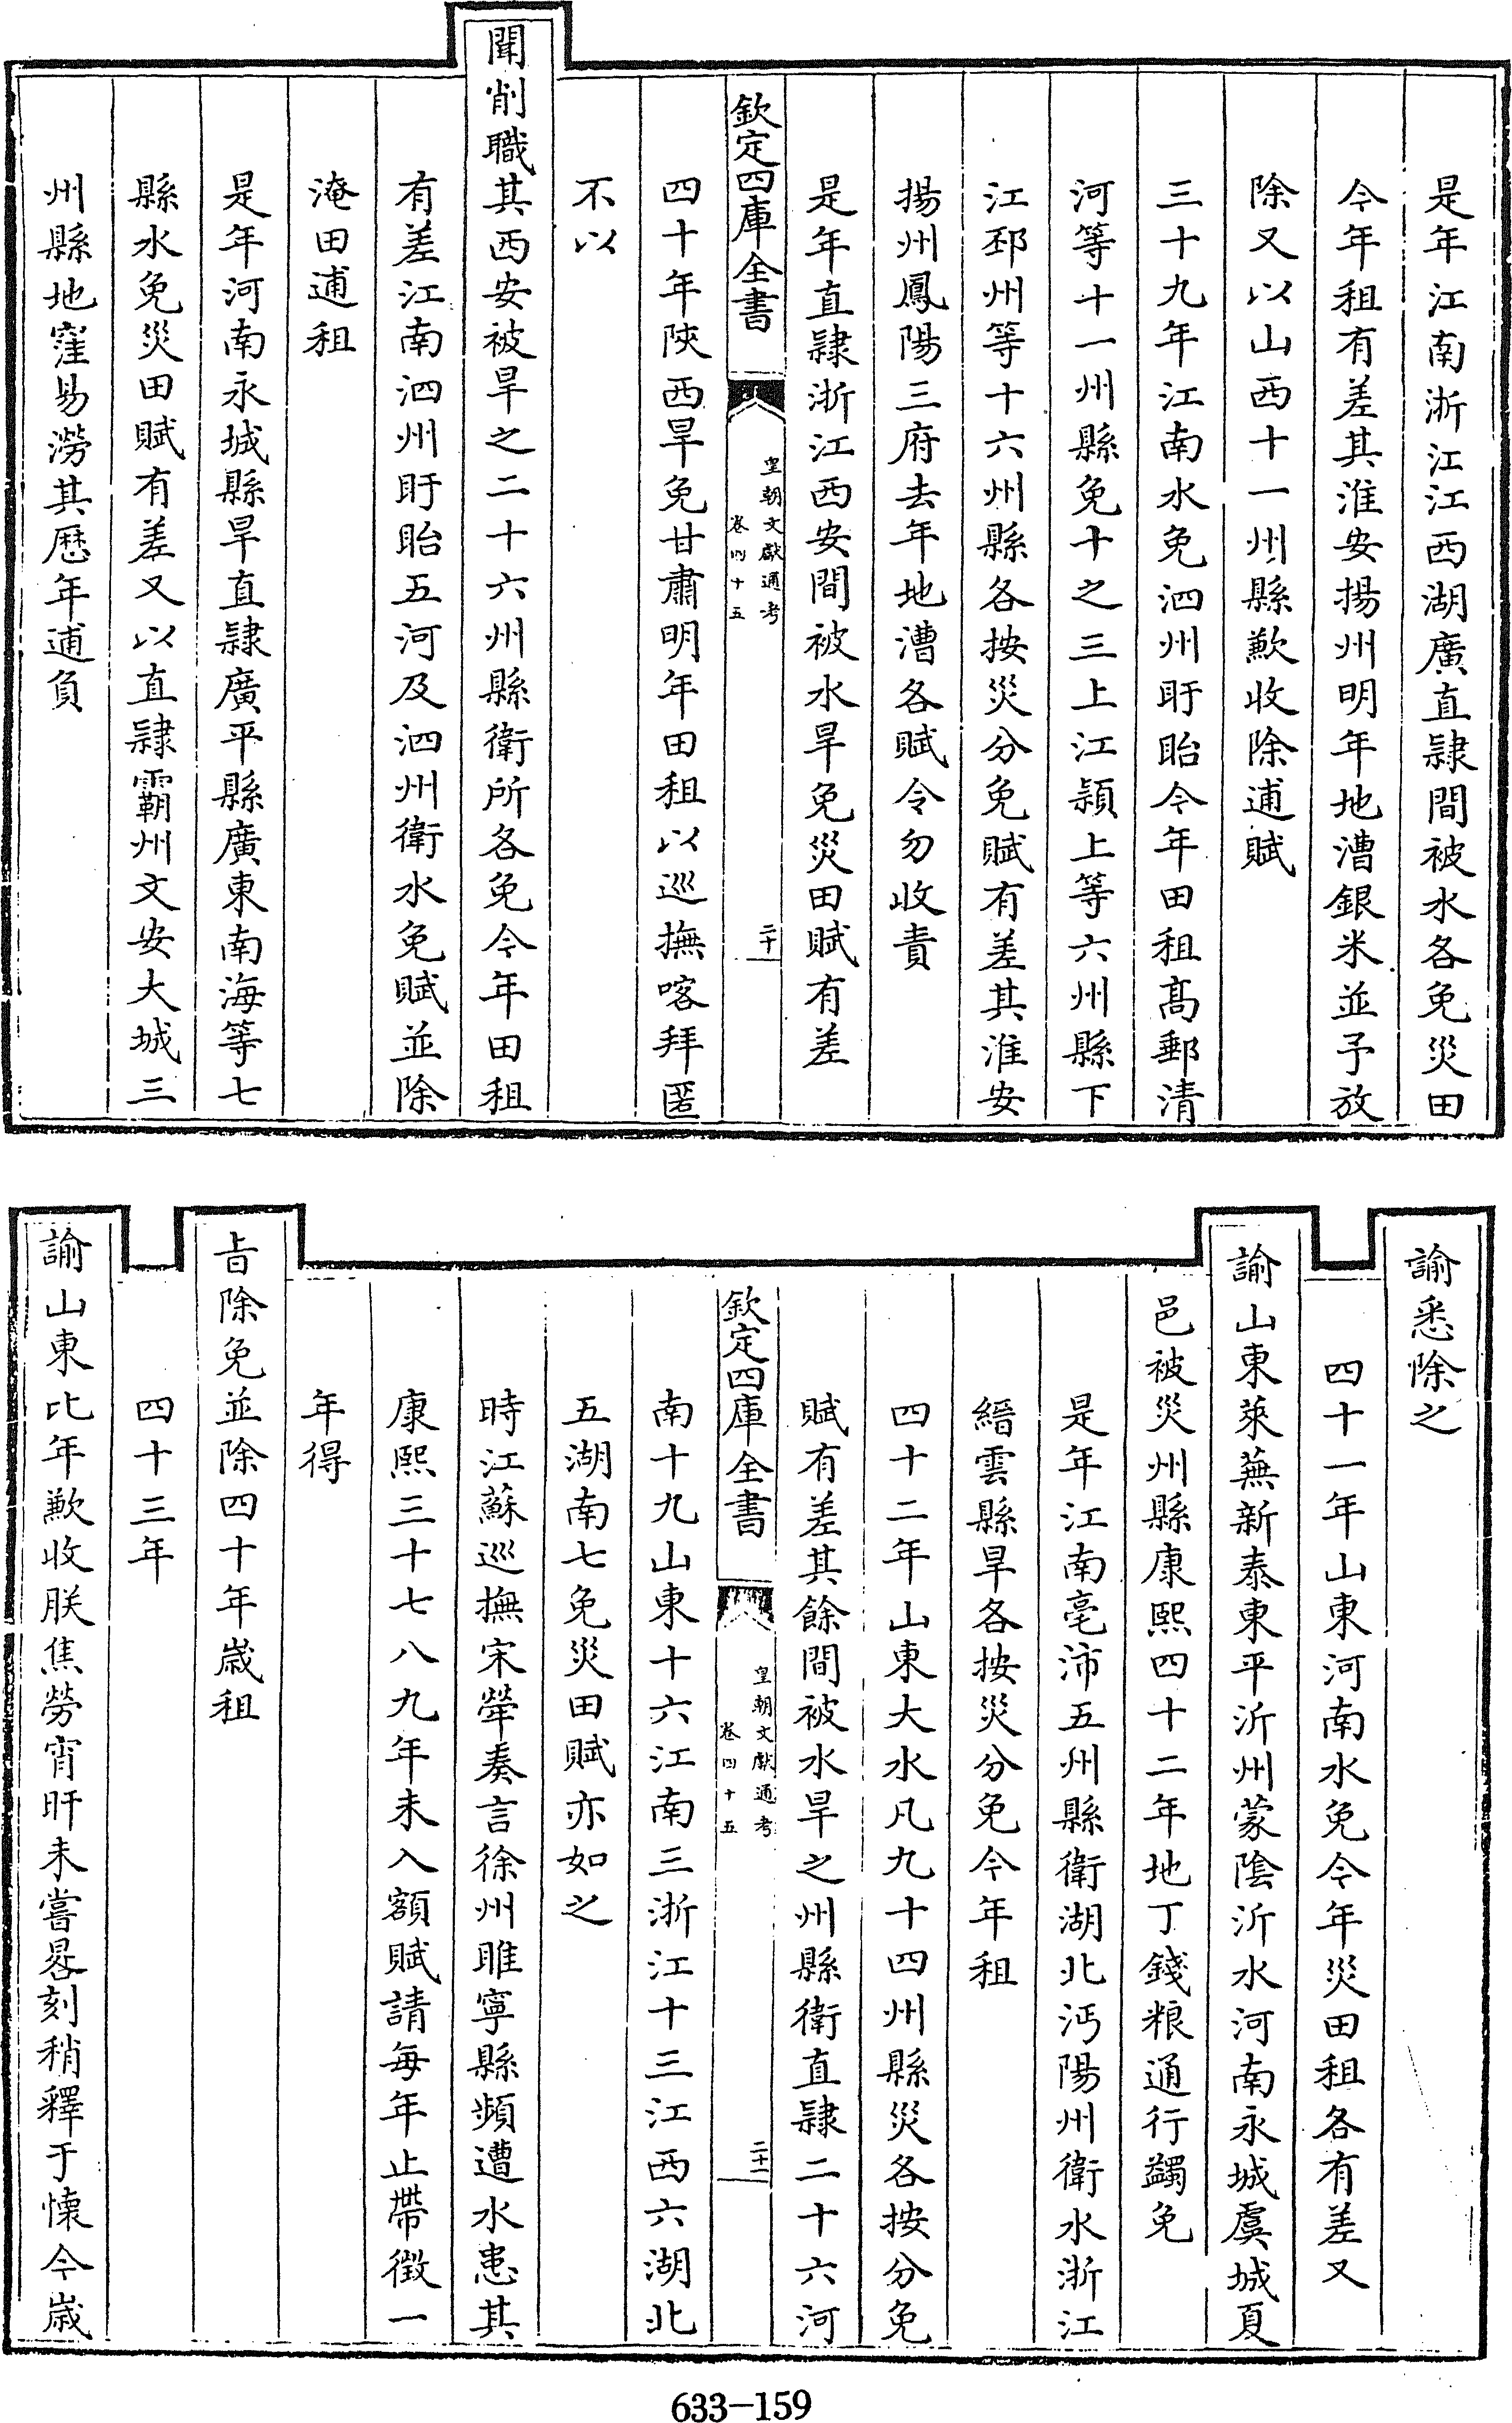 是年江南浙江江西湖廣直隷間被水各免災田
今年租有差其淮安揚州明年地漕銀米並予放
除又以山西十一州縣歉收除逋賦
三十九年江南水免泗州盱眙今年田租髙郵清
河等十一州縣免十之三上江潁上等六州縣下
江邳州等十六州縣各按災分免賦有差其淮安
揚州鳳陽三府去年地漕各賦令勿收責
是年直隷浙江西安間被水旱免災田賦有差
欽定四庫全書
皇朝文獻通考
卷四十五
二十
四十年陜西旱免甘肅明年田租以巡撫喀拜匿
不以
聞削職其西安被旱之二十六州縣衛所各免今年田租
有差江南泗州盱眙五河及泗州衛水免賦並除
淹田逋租
是年河南永城縣旱直隷廣平縣廣東南海等七
縣水免災田賦有差又以直隷霸州文安大城三
州縣地窪易澇其厯年逋負
諭悉除之
四十一年山東河南水免今年災田租各有差又
諭山東萊蕪新泰東平沂州蒙隂沂水河南永城虞城夏
邑被災州縣康熙四十二年地丁錢粮通行蠲免
是年江南亳沛五州縣衛湖北沔陽州衛水浙江
縉雲縣旱各按災分免今年租
四十二年山東大水凡九十四州縣災各按分免
賦有差其餘間被水旱之州縣衛直隷二十六河
欽定四庫全書
皇朝文獻通考
卷四十五
二十一
南十九山東十六江南三浙江十三江西六湖北
五湖南七免災田賦亦如之
時江蘇巡撫宋犖奏言徐州睢寧縣頻遭水患其
康熙三十七八九年未入額賦請每年止帶徴一
年得
㫖除免並除四十年歲租
四十三年
諭山東比年歉收朕焦勞宵旰未嘗晷刻稍釋于懐今歲
633-159